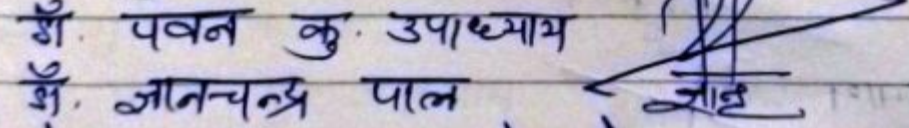 डॉ. पवन कु. उपाध्याय
डॉ. ज्ञानचन्द्र पाल